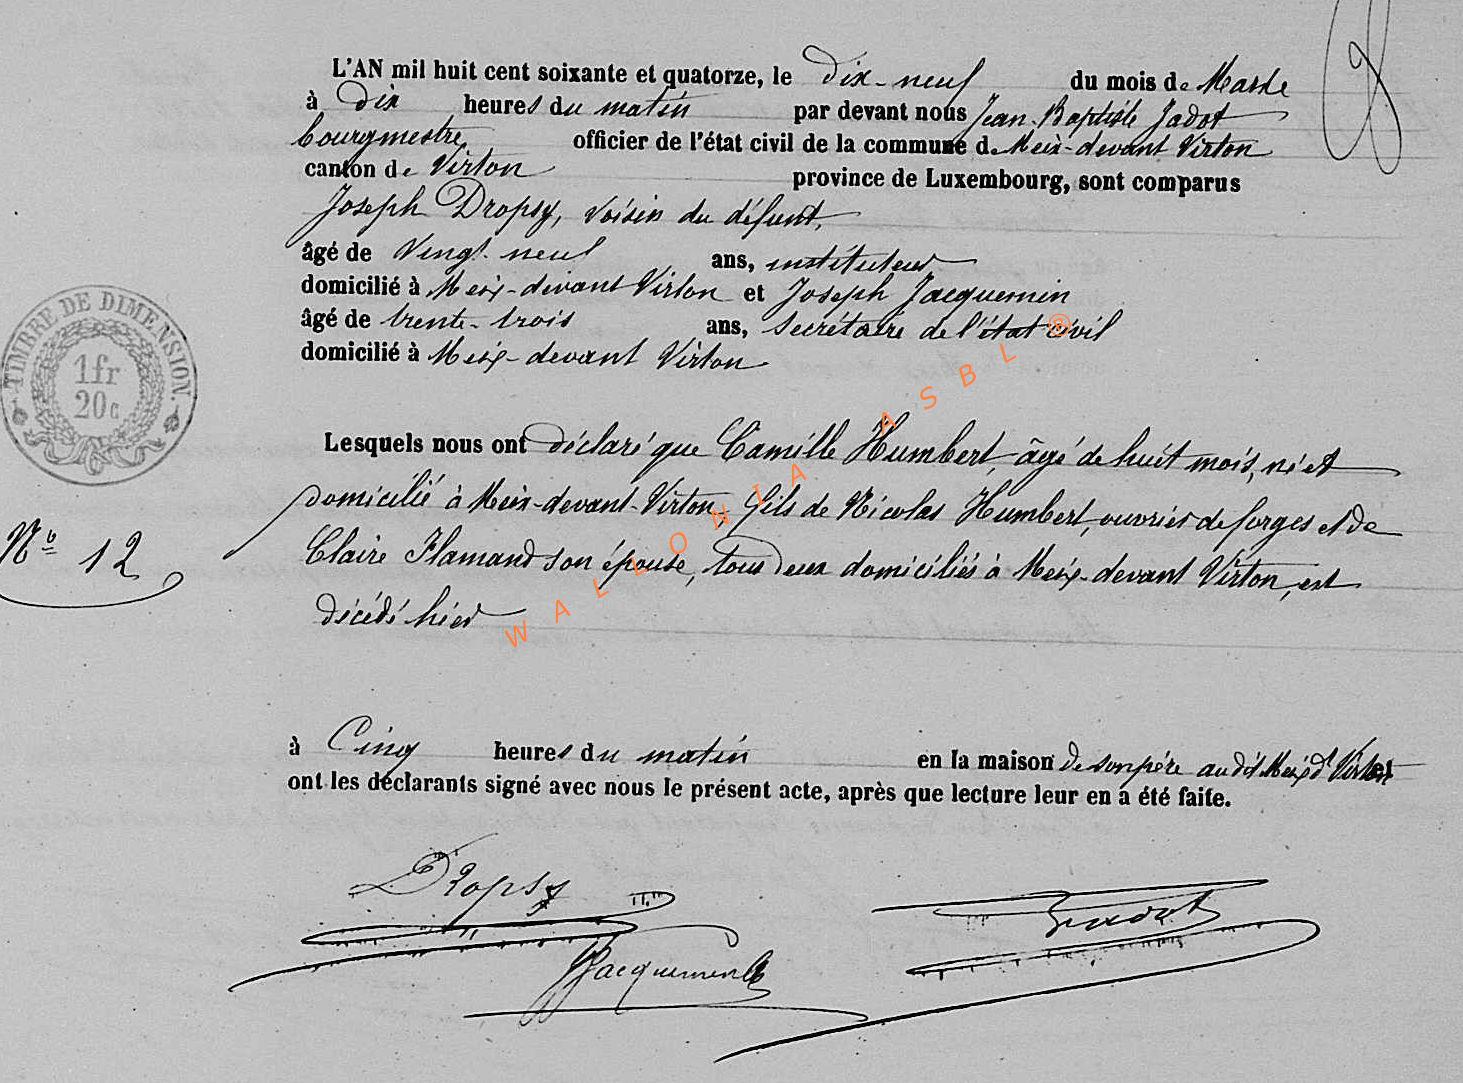 L'AN mil huit cent soixante et quatorze, le Dix-neuf du mois de Mars
à Dix heures du matin par devant nous Jean-Baptiste Jadot
bourgmestre officier de l'état civil de la commune de Meix-devant Virton
canton de Virton province de Luxembourg, sont comparus
Joseph Dropsy, voisin du défunt,
âgé de Vingt-neuf ans, instituteur
domicilié à Meix-devant Virton et Joseph Jacquemin
âgé de trente-trois ans, secrétaire de l'état civil
domicilié à Meix-devant Virton
TIMBRE DE DIMENSION.
1fr
20c
Lesquels nous ont déclaré que Camille Humbert, âgé de huit mois, né et
domicilié à Meix-devant-Virton, fils de Nicolas Humbert, ouvrier de forges et de
Nº 12
Claire Flamand son épouse, tous deux domiciliés à Meix-devant Virton, est
décédé hier
WALLONIA ASBL ®
à Cinq heures du matin en la maison de son père au dit Meix-dt Virton
ont les déclarants signé avec nous le présent acte, après que lecture leur en a été faite.
Dropsy
Jadot
JJacquemin